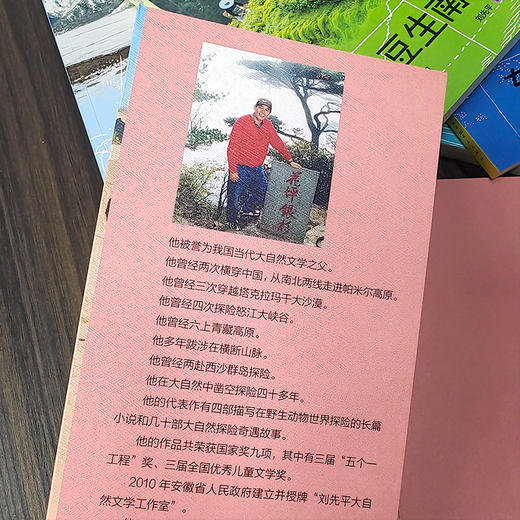 豆生南
刘先平
花坪银杉
他被誉为我国当代大自然文学之父。
他曾经两次横穿中国，从南北两线走进帕米尔高原。
他曾经三次穿越塔克拉玛干大沙漠。
他曾经四次探险怒江大峡谷。
他曾经六上青藏高原。
他多年跋涉在横断山脉。
他曾经两赴西沙群岛探险。
他在大自然中凿空探险四十多年。
他的代表作有四部描写在野生动物世界探险的长篇
小说和几十部大自然探险奇遇故事。
他的作品共荣获国家奖九项，其中有三届“五个一
工程”奖、三届全国优秀儿童文学奖。
2010 年安徽省人民政府建立并授牌“刘先平大自
然文学工作室”。